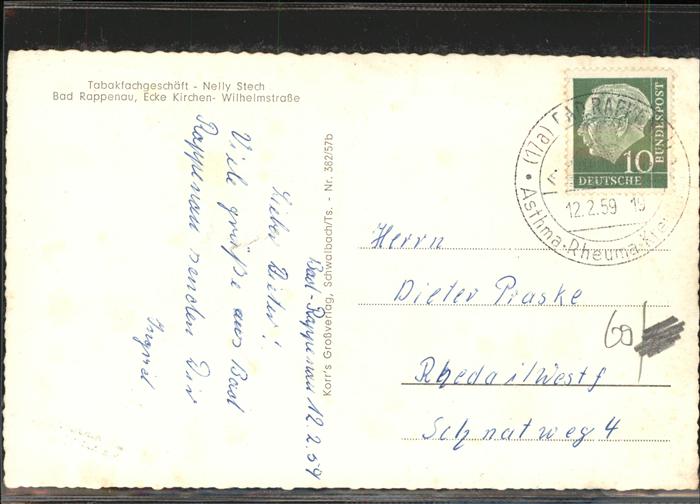 Tabakfachgeschäft - Nelly Stech
Bad Rappenau, Ecke Kirchen- Wilhelmstraße
Bad-Rappenau 12.2.59
Lieber Dieter!
Viele größe aus Bad
Rappenau senden Dir
Ingrid.
Korr's Großverlag, Schwalbach/Ts. - Nr. 382/57b
10
BUNDESPOST
DEUTSCHE
(17a) BAD RAPPENAU
12.2.59
Asthma-Rheuma-
Herrn
Dieter Praske
Rheda i/Westf
Schnatweg 4
60